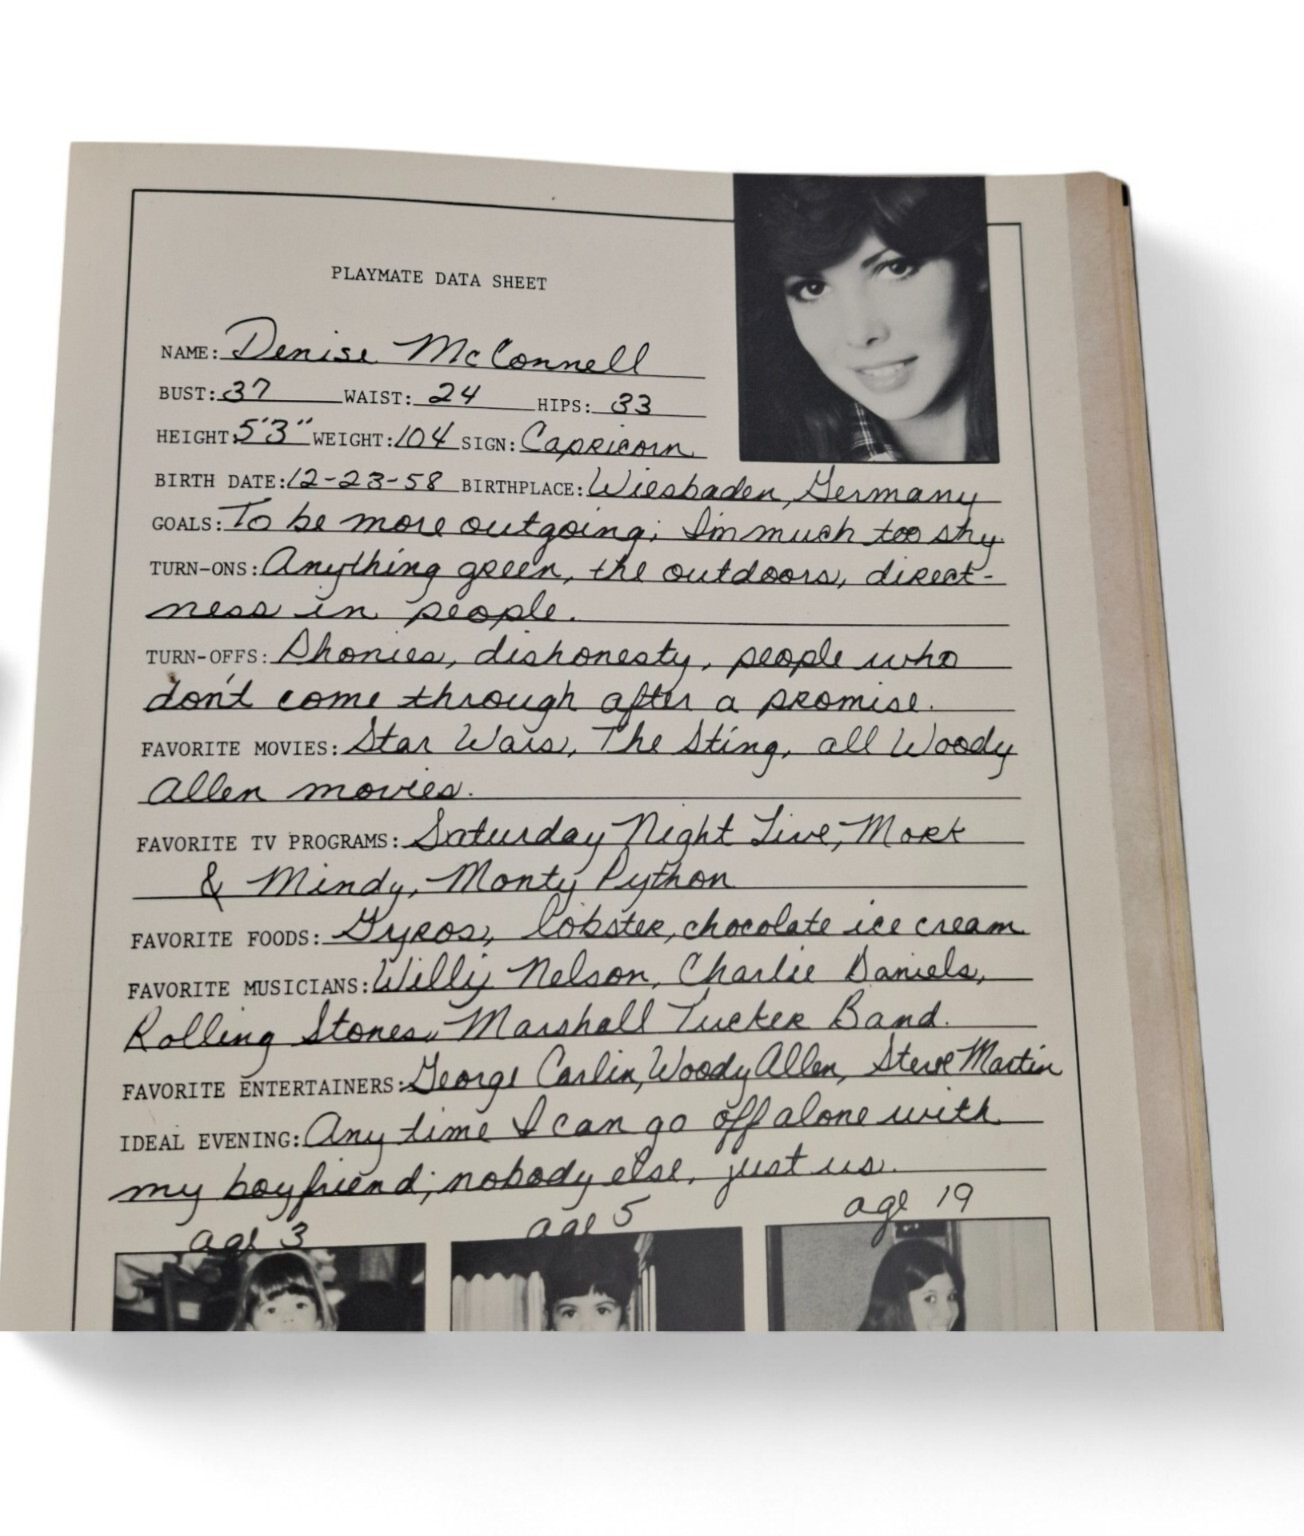 PLAYMATE DATA SHEET
NAME: Denise McConnell
BUST: 37 WAIST: 24 HIPS: 33
HEIGHT: 5'3" WEIGHT: 104 SIGN: Capricorn
BIRTH DATE: 12-23-58 BIRTHPLACE: Wiesbaden, Germany
GOALS: To be more outgoing; I'm much too shy.
TURN-ONS: Anything green, the outdoors, direct-
ness in people.
TURN-OFFS: Phonies, dishonesty, people who
don't come through after a promise.
FAVORITE MOVIES: Star Wars, The Sting, all Woody
Allen movies.
FAVORITE TV PROGRAMS: Saturday Night Live, Mork
& Mindy, Monty Python
FAVORITE FOODS: Gyros, lobster, chocolate ice cream
FAVORITE MUSICIANS: Willy Nelson, Charlie Daniels,
Rolling Stones, Marshall Tucker Band.
FAVORITE ENTERTAINERS: George Carlin, Woody Allen, Steve Martin
IDEAL EVENING: Any time I can go off alone with
my boyfriend; nobody else, just us.
age 3 age 5 age 19